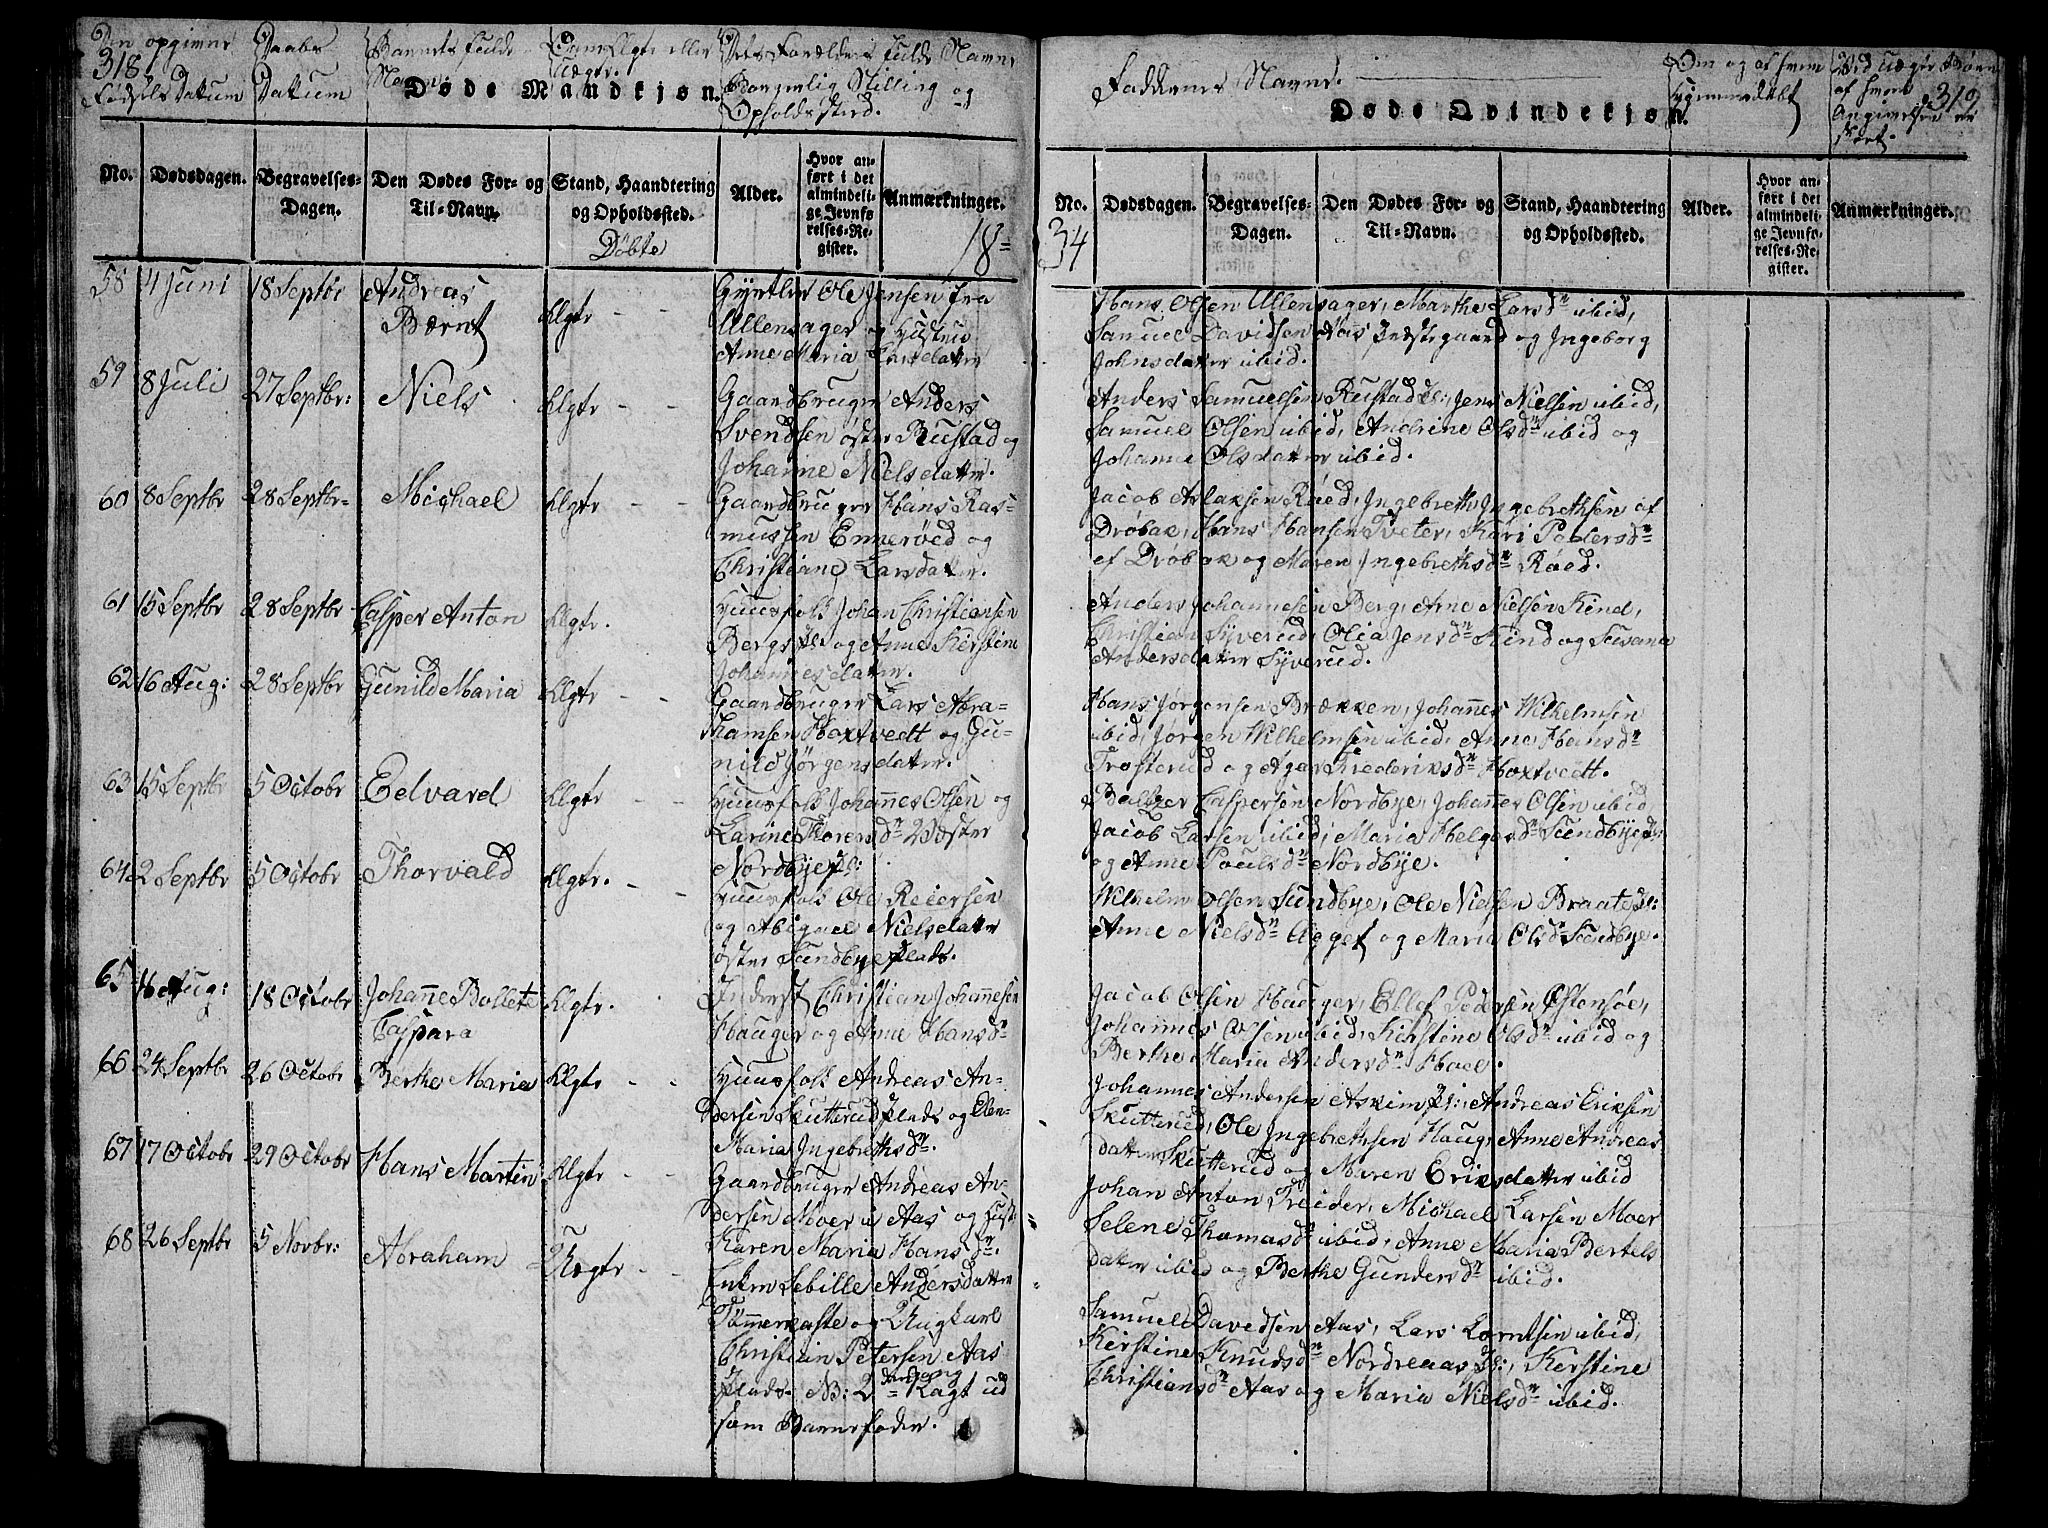 Den opgivne
318
Fødsels Datum
Daabs
Datum
Barnets fulde
Navn.
Om Ægte eller
Uægte.
Døde Mandkjøn.
Forældrenes fulde Navne
Borgerlig Stilling og
Opholdssted.
No.
Dødsdagen.
Begravelses-
Dagen.
Den Dødes For- og
Til-Navn.
Stand, Haandtering
og Opholdssted.
Døbte
Alder.
Hvor an-
ført i det
almindeli-
ge Jevnfø-
relses-Re-
gister.
Anmærkninger.
18=
58 4 Juni 18 Septbr Andreas
Bernt Ægte - -
Gyrtler Ole Jensen fra
Ullensager og Hustrue
Anne Maria Larsdatter
59 8 Juli 27 Septbr: Niels Ægte - -
Gaardbruger Anders
Svendsen øster Rustad og
Johanne Nielsdatter.
60 8 Septbr 28 Septbr- Michael Ægte - -
Gaardbruger Hans Ras-
mussen Ennerød og
Christiane Larsdatter.
61 15 Septbr 28 Septbr Casper Anton Ægte.
Huusfolk Johan Christiansen
Bergs Pl: og Anne Kirstine
Johannesdatter.
62 16 Aug: 28 Septbr Gunild Maria Ægte - -
Gaardbruger Lars Abra-
hamsen Hoxtvedt og Gu-
nild Jørgensdatter.
63 15 Septbr 5 Octobr Edvard Ægte - -
Huusfolk Johannes Olsen og
Larine Thoresdn Vester
Nordbye Pl:
64 2 Septbr 5 Octobr Thorvald Ægte. - -
Huusfolk Ole Reiersen
og Abigael Nielsdatter
øster Sundbye Plads.
65 16 Aug: 18 Octobr Johanne Bollete
Caspara Ægte.
Inderst Christian Johannesen
Hauger og Anne Hansdn
66 24 Septbr 26 Octobr Berthe Maria Ægte - -
Huusfolk Andreas An-
dersen Skutterud Plads og Elen-
Maria Ingebrethsdn.
67 17 Octobr 29 Octobr Hans Martin Ægte - -
Gaardbruger Andreas An-
dersen Moer i Aas og Hust:
Karen Maria Hansdn.
68 26 Septbr 5 Novbr: Abraham Uægte - -
Enken Sebille Andersdatter
Tømmerkaste og Ungkarl
Christian Petersen Aas
Plads. NB: 2den Gang lagt ud
som Barnefader.
Faddernes Navne.
Døde Qvindekjøn.
Om og af hvem
hjemmedøbt
Ved uægte Børn
af hvem
Angivelsen er
skeet.
319
No.
34
Dødsdagen.
Begravelses-
Dagen.
Den Dødes For- og
Til-Navn.
Stand, Haandtering
og Opholdssted.
Alder.
Hvor an-
ført i det
almindeli-
ge Jevnfø-
relses-Re-
gister.
Anmærkninger.
Hans Olsen Ullensager, Marthe Larsdn ubid,
Samuel Davidsen Aas Præstegaard og Ingeborg
Johnsdatter ibid.
Anders Samuelsen Rustad Pl: Jens Nielsen ubid,
Samuel Olsen ubid, Andrine Olsdn ubid og
Johanne Olsdatter ubid.
Jacob Aslaksen Røed, Ingebreth Ingebrethsen af
Drøbak, Hans Hansen Tveter, Kari Pedersdn
af Drøbak og Maren Ingebrethsdn Røed.
Anders Johannesen Berg, Arne Nielsen Kind,
Christian Syverud, Olia Jensdn Kind og Susana
Andersdatter Syverud.
Hans Jørgensen Brækken, Johannes Wilhelmsen
ubid, Jørgen Wilhelmsen ubid, Anne Hansdn
Trosterud og Agar Frederiksdn Hoxtvedt.
Baltzer Caspersen Nordbye, Johannes Olsen ubid,
Jacob Larsen ubid, Maria Helgesdn Sundbye Pl:
og Anne Poulsdn Nordbye.
Wilhelm Olsen Sundbye, Ole Nielsen Braate Pl:
Anne Nielsdn Agget og Maria Olsdn Sundbye.
Jacob Olsen Hauger, Ellef Pedersen Østensøe,
Johannes Olsen ubid, Kirstine Olsdn ubid og
Berthe Maria Andersdn Hoel.
Johannes Andersen Askim Pl: Andreas Eriksen
Skutterud, Ole Ingebrethsen Haug, Anne Andreas
datter Skutterud og Maren Eriksdatter ubid
Johan Anton Kreider, Michael Larsen Moer
Selene Thomasdn ubid, Anne Maria Bertels
datter ubid og Berthe Gundersdn ibid.
Samuel Davidsen Aas, Lars Lorntsen ubid,
Kirstine Knudsdn Nordreaas Pl:, Kerstine
Christiansdn Aas og Maria Nielsdn ubid.